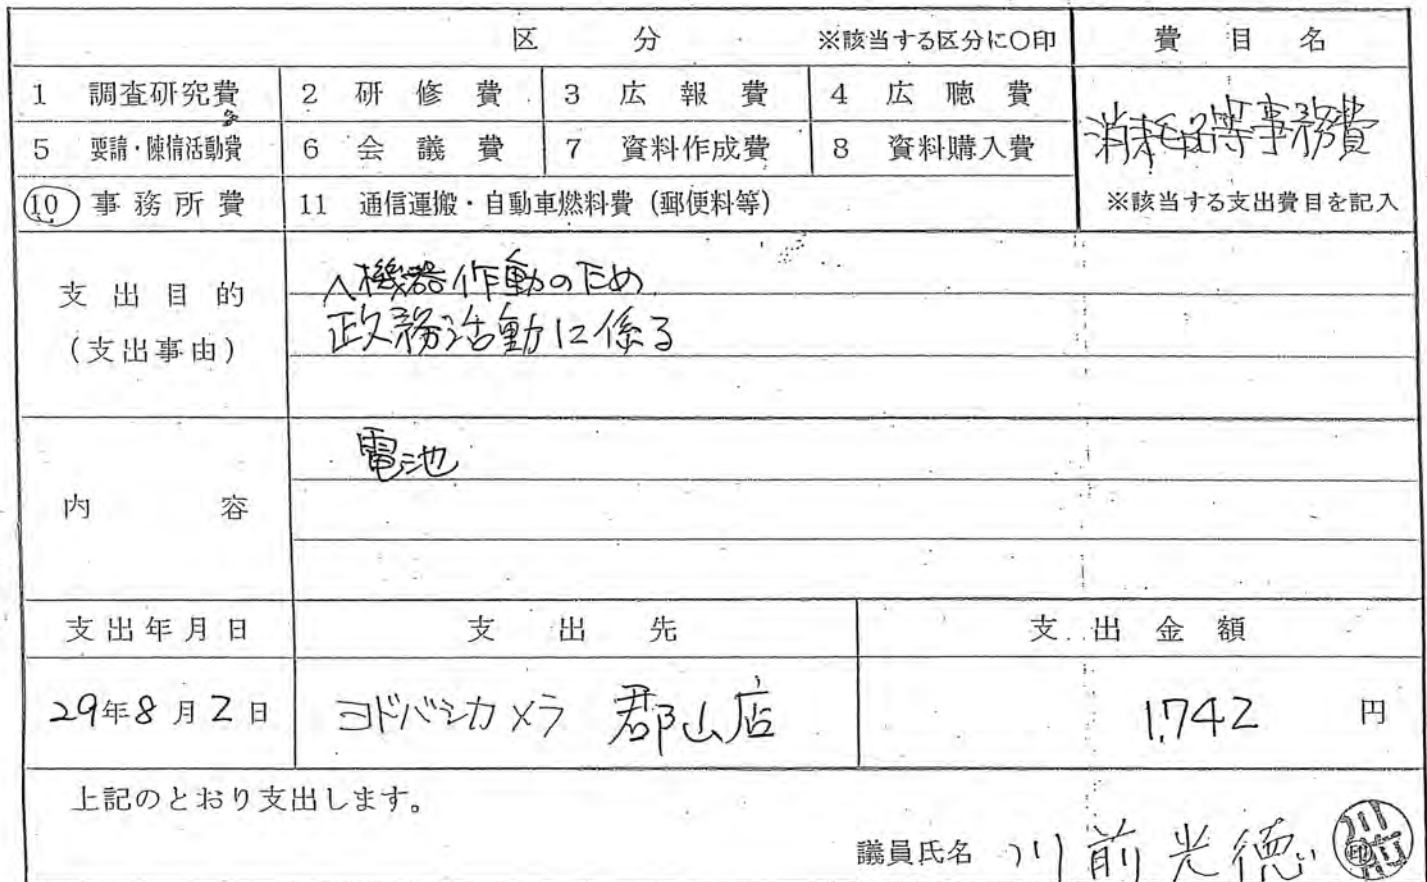 区 分 ※該当する区分に○印 費目名
1 調査研究費 2 研修費 3 広報費 4 広聴費
消耗品等事務費
5 要請・陳情活動費 6 会議費 7 資料作成費 8 資料購入費
⑩ 事務所費 11 通信運搬・自動車燃料費(郵便料等) ※該当する支出費目を記入
支出目的
(支出事由)
∧機器作動のため
政務活動に係る
内容
電池
支出年月日 支出先 支出金額
29年8月2日 ヨドバシカメラ 郡山店 1,742 円
上記のとおり支出します。
議員氏名 川前光徳 印